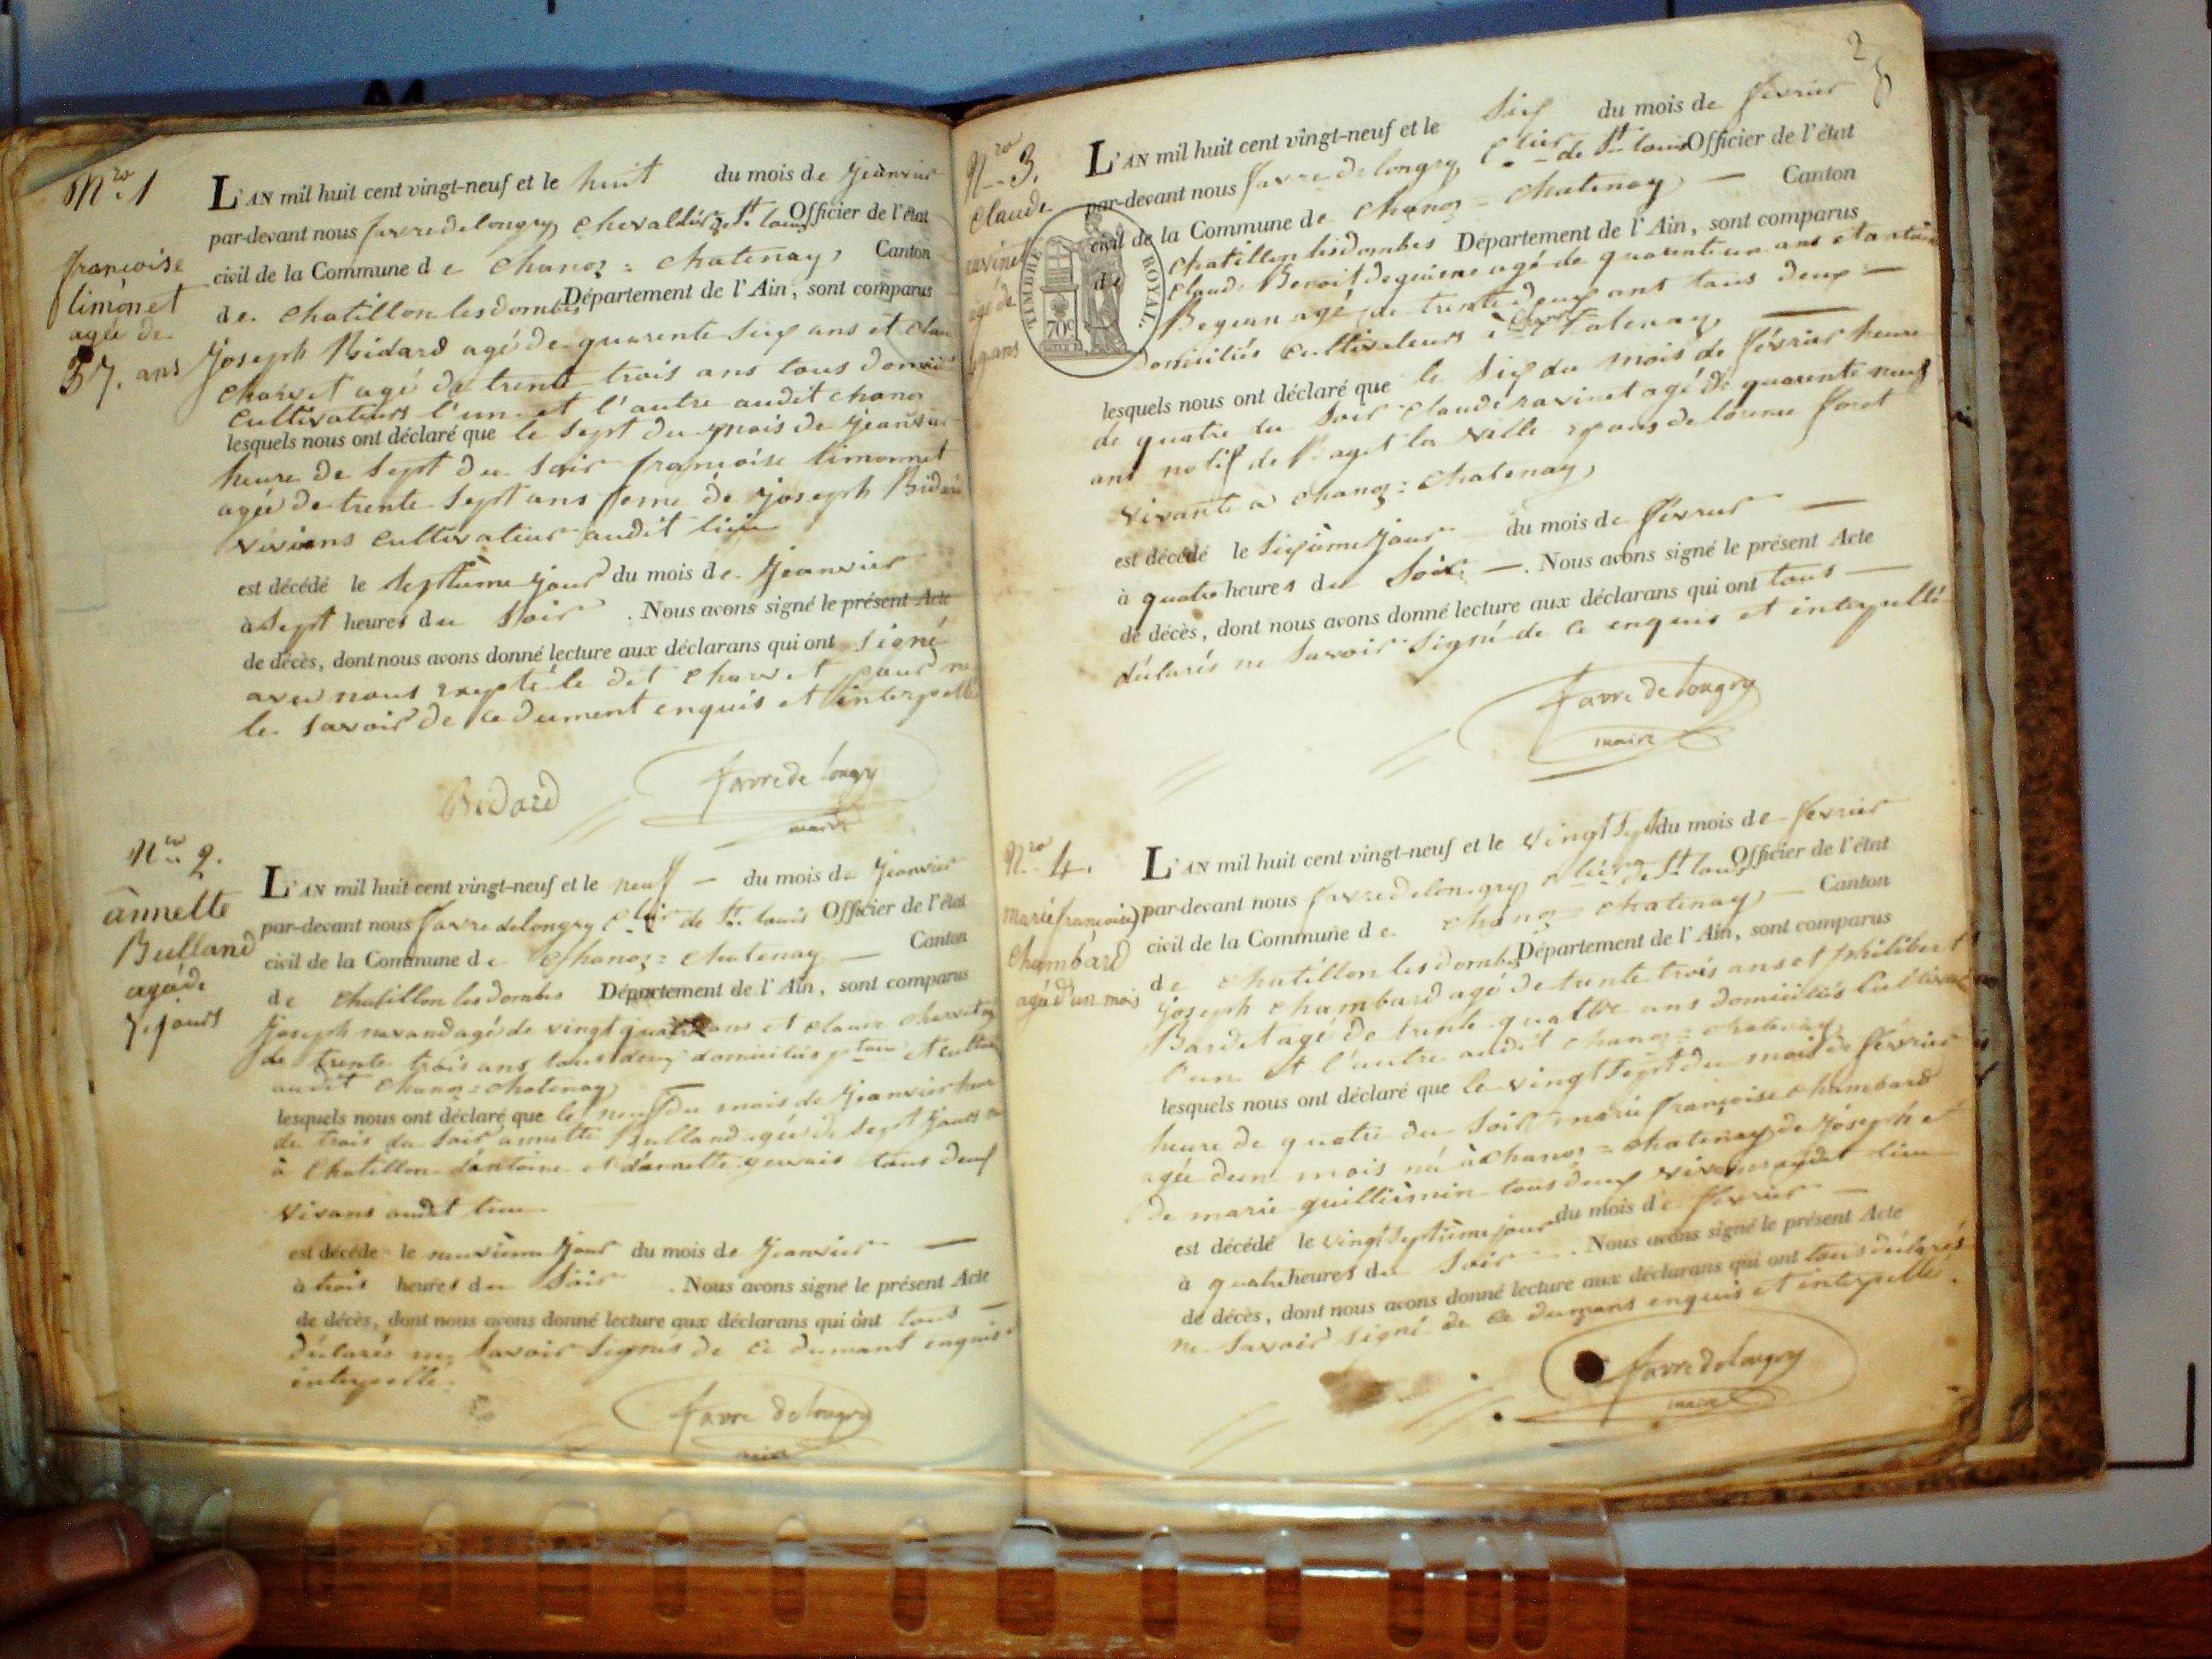 Nro. 1
françoise
limonet
agée de
37. ans
L'AN mil huit cent vingt-neuf et le huit du mois de Jeanvier
par-devant nous favre de longry, chevallier de St. louis Officier de l'état
civil de la Commune de Chanoz = Chatenay, Canton
de Chatillon les dombes Département de l'Ain, sont comparus
Joseph Bidard agé de quarente six ans et Clau
Charvet agé de trente trois ans tous
cultivateurs l'un et l'autre audit chanoz
lesquels nous ont déclaré que le sept du mois de Jeanvier
heure de sept du soir françoise limonnet
agée de trente sept ans feme de Joseph Bidard
vivians cultivateur audit lieu
est décédé le septième jour du mois de Jeanvier
à sept heures du soir . Nous avons signé le présent Acte
de décès, dont nous avons donné lecture aux déclarans qui ont signé
avec nous excepté le dit Charvet pour ne
le savoir de ce dument enquis et interpellé
Bidard favre de longry
maire
Nro 2.
annette
Bulland
agé de
7 jours
L'AN mil huit cent vingt-neuf et le neuf — du mois de Jeanvier
par-devant nous favre de longry Clier de St. louis Officier de l'état
civil de la Commune de Chanoz = Chatenay — Canton
de Chatillon les dombes Département de l'Ain, sont comparus
Joseph agé de vingt quatre ans et Claude Charvet
de trente trois ans tous deux domiciliés et
audit Chanoz = Chatenay
lesquels nous ont déclaré que le neuf du mois de Jeanvier heur
de trois du soir annette Bulland agée de sept jours
à Chatillon d'antoine et d'annette gervais tous deux
vivans audit lieu
est décédé le neuvième jour du mois de Jeanvier —
à trois heures du soir . Nous avons signé le présent Acte
de décès, dont nous avons donné lecture aux déclarans qui ont tous —
déclarés ne savoir signés de ce dumant enquis
interpellé
favre de longry
maire
2
Nro 3.
Claude
ravinet
agé de
49 ans
TIMBRE ROYAL.
70c
L'AN mil huit cent vingt-neuf et le six du mois de février
par-devant nous favre de longry, Clier de St louis Officier de l'état
civil de la Commune de Chanoz = Chatenay, — Canton
de Chatillon les dombes Département de l'Ain, sont comparus
Claude Benoit agé de quarente un ans et antoine
Beguan agé de trente deux ans tous deux —
domiciliés cultivateurs à Chanoz Chatenay, —
lesquels nous ont déclaré que le six du mois de février heure
de quatre du soir Claude ravinet agé de quarente neuf
ans natif de Bagé la ville epoux de foret
vivante à Chanoz = Chatenay,
est décédé le sixième jour du mois de février —
à quatre heures du soir —. Nous avons signé le présent Acte
de décès, dont nous avons donné lecture aux déclarans qui ont tous —
déclarés ne savoir signé de ce enquis et interpellé
favre de longry
maire
Nro 4.
marie françoise
Chambard
agée d'un mois
L'AN mil huit cent vingt-neuf et le vingt sept du mois de février
par-devant nous favre de longry Clier de St. louis Officier de l'état
civil de la Commune de Chanoz = Chatenay, — Canton
de Chatillon les dombes Département de l'Ain, sont comparus
Joseph Chambard agé de trente trois ans et philibert
Bardet agé de trente quatre ans domiciliés
l'un et l'autre audit Chanoz = Chatenay,
lesquels nous ont déclaré que le vingt sept du mois de février
heure de quatre du soir marie françoise Chambard
agée d'un mois né à Chanoz = Chatenay de Joseph et
de marie guillièmin tous deux vivans audit lieu
est décédé le vingt septième jour du mois de février —
à quatre heures du soir . Nous avons signé le présent Acte
de décès, dont nous avons donné lecture aux déclarans qui ont tous déclarés
ne savoir signé de ce dumans enquis et interpellé.
favre de longry
maire